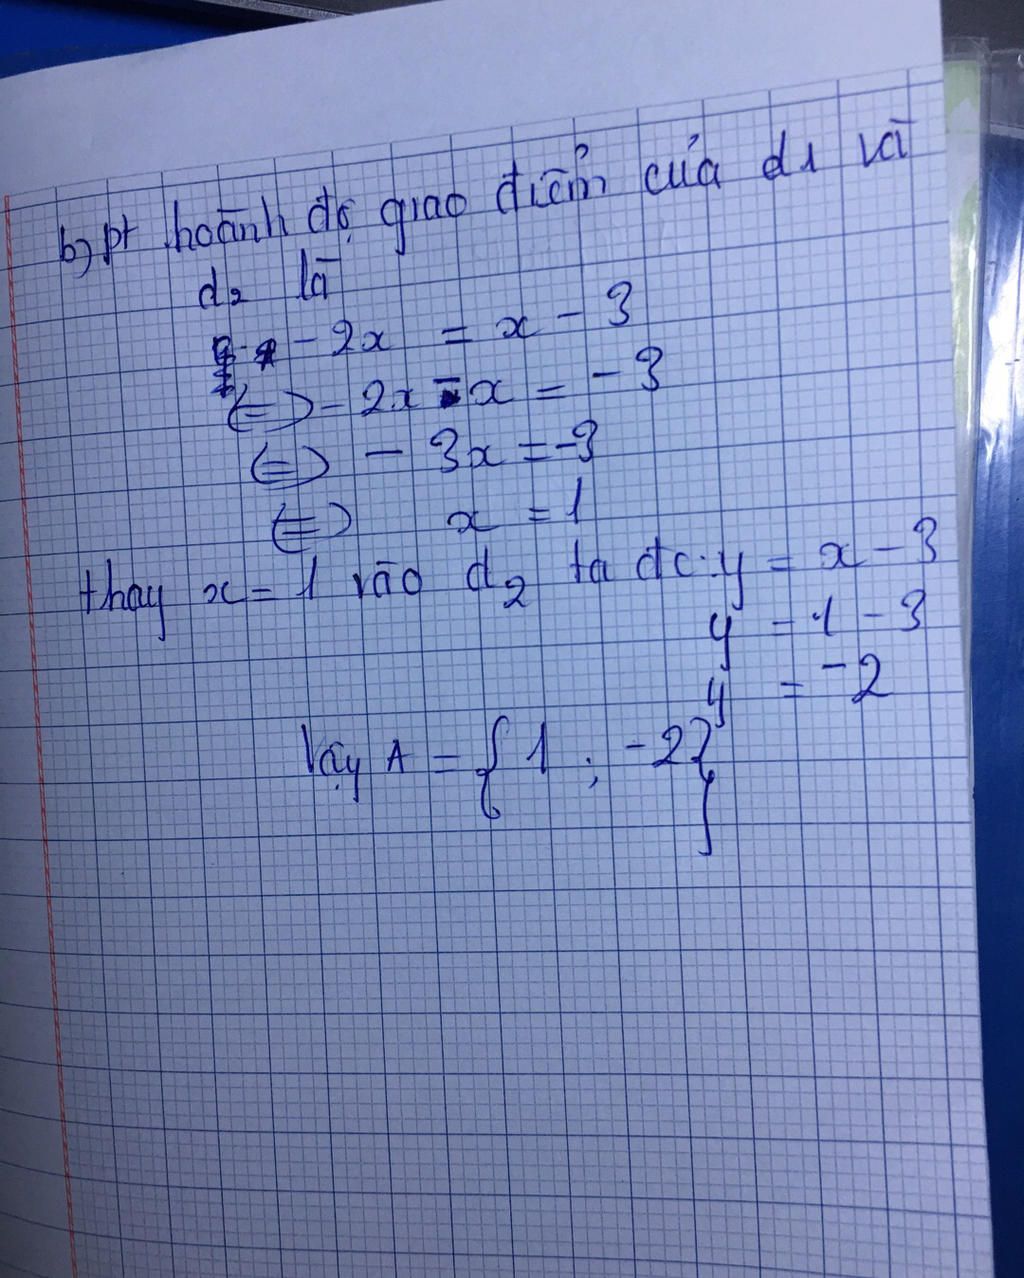 b) pt hoành độ giao điểm của d1 và
d2 là
- 2x = x - 3
(=) - 2x - x = - 3
(=) - 3x = -3
(=) x = 1
thay x = 1 vào d2 ta đc: y = x - 3
y = 1 - 3
y = -2
Vậy A = { 1 ; -2}